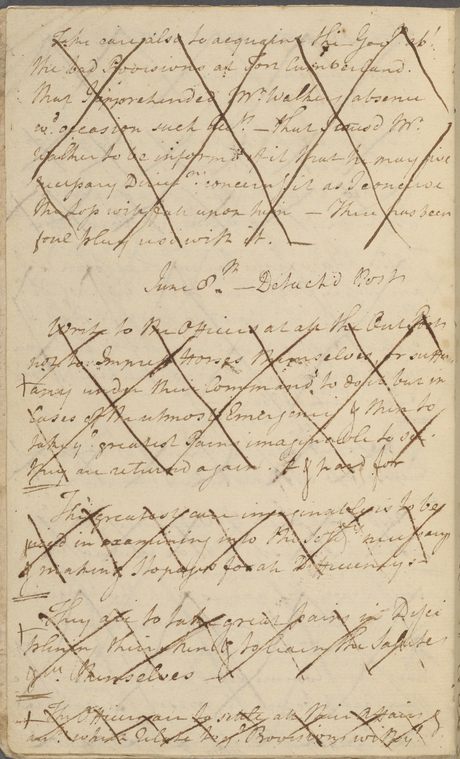 Take care also to acquaint the Gov.r ab.t
the bad Provisions at Fort Cumberland.
that I apprehended Mr. Walkers absence
w.d occasion such — that I caus'd Mr.
Walker to be inform'd of it that he may give
necessary Direc.ns concern.g it as I conceive
the loss will fall upon him — There has been
foul play us'd with it. —
June 8.th — Detach'd Posts
Write to the Officers at all the Out Posts
not to Impress Horses themselves, or suffer
any under their Command to do it but in
Cases of the utmost Emergency & then to
take y.e greatest Pains imaginable to see
they are returned again. & paid for
The greatest care imaginable is to be
used in examining into the necessary
& making Stopages for all Dificiencys —
They are to take great pains in Disci
plining their Men & to learn the Salute
themselves —
The Officers are to settle all their Affairs
which relate to y.e Provisions with